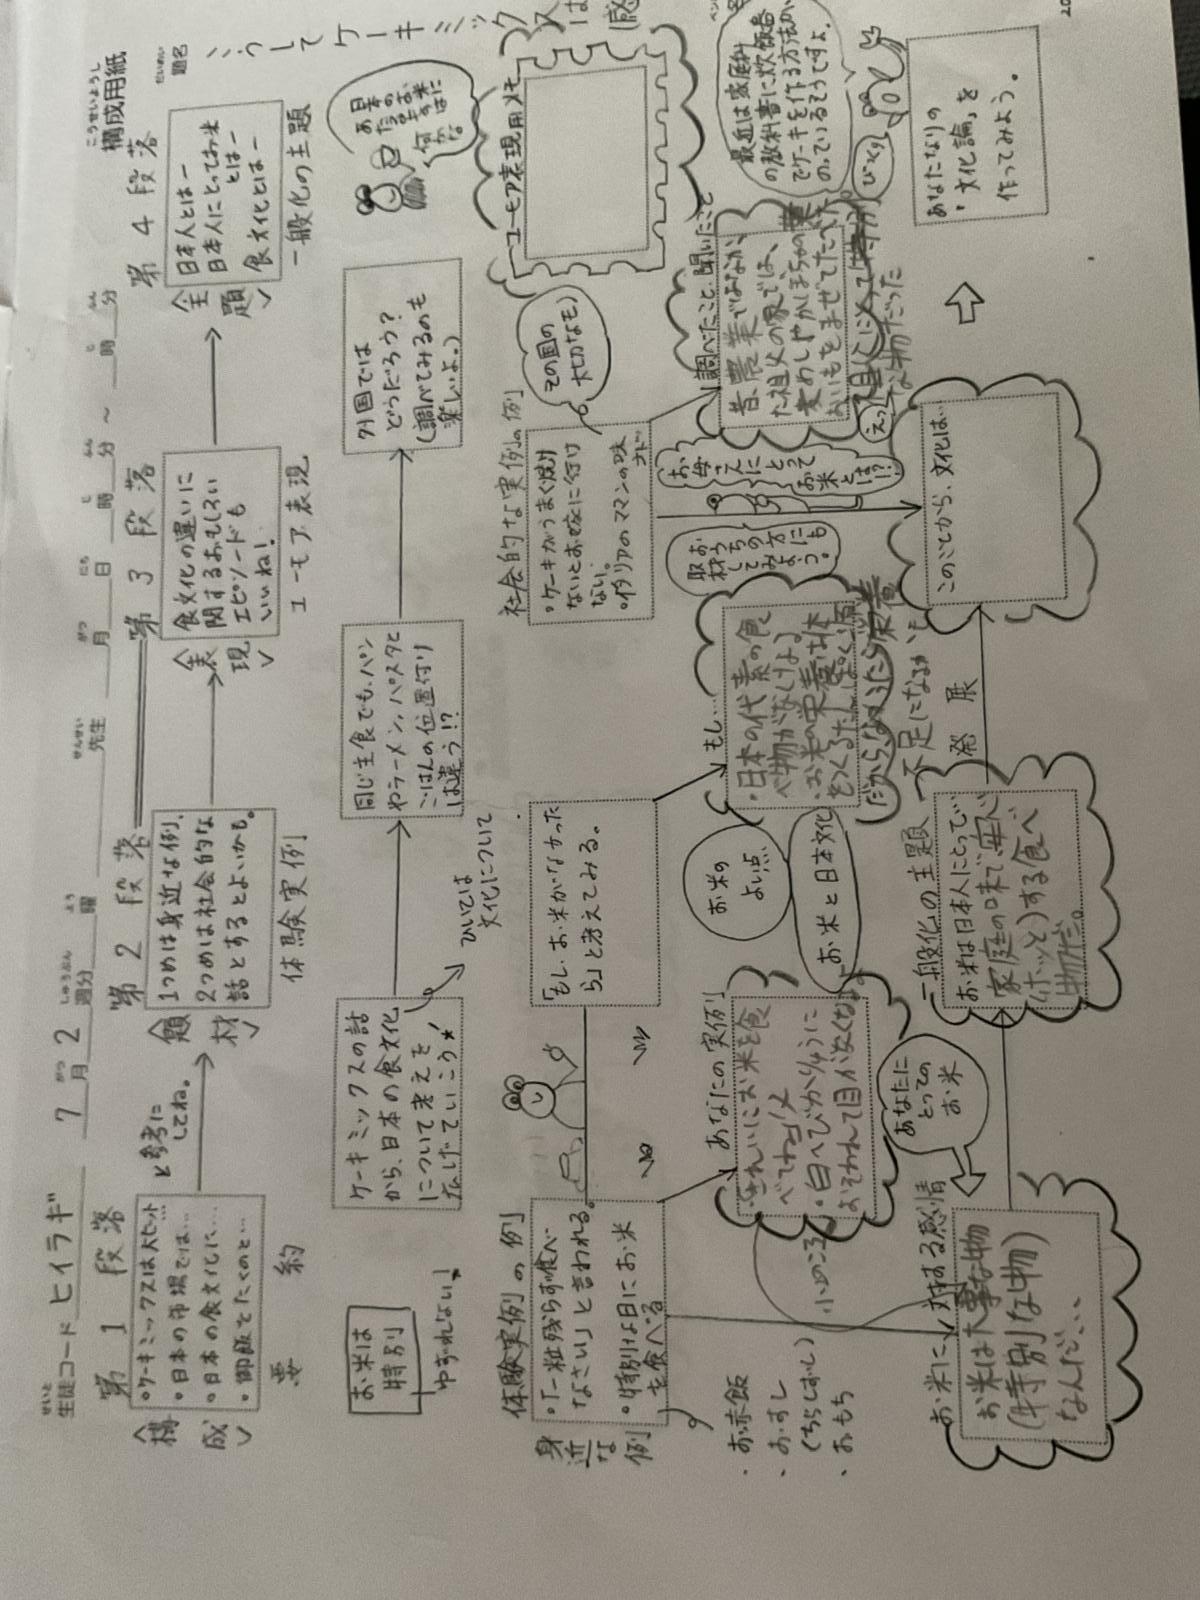 構成用紙
こうせいようし
題名
だいめい
こうしてケーキミックスは
生徒コード ヒイラギ 7月2週分 曜 先生 月 日 時 分 ～ 時 分
第1段落
第2段落
第3段落
第4段落
〈構成〉
・ケーキミックスは大ヒット…
・日本の市場では…
・日本の食文化に…
・御飯をたくのと…
要約
を参考に
してね。
〈題材〉
1つめは身近な例、
2つめは社会的な
話とするとよいかも。
体験実例
〈表現〉
食文化の違いに
関するおもしろい
エピソードも
いいね！
ユーモア表現
〈主題〉
日本人とはー
日本人にとってお米
とはー
食文化とはー
一般化の主題
お米は
特別
ゆずれない！
ケーキミックスの話
から、日本の食文化
について考えを
広げていこう★！
ひいては
文化について
同じ主食でも、パン
やラーメン、パスタと
ごはんの位置付け
は違う！？
外国では
どうだろう？
（調べてみるのも
楽しいよ。）
体験実例の例
身近な例
・「一粒残らず食べ
なさい」と言われる。
・特別な日にお米
を食べる
・お赤飯
・おすし
（ちらしずし）
・おもち
「もし、お米がなかった
ら」と考えてみる。
社会的な実例の例
・ケーキがうまく焼け
ないとお嫁に行け
ない。
・イタリアのママンの味
など
その国の
大切なもの
ユーモア表現用メモ
あなたの実例
・きれいにお米を食
べてね』父
小2のころ
お米の
よい点
お米と日本文化
もし…
・日本の代表の食
べ物がなくなる
・お米の栄養は体
だからなくなったら栄養
不足になるかも
お母さんに
とって
お米とは！？
おうちの方にも
取材してみよう。
調べたこと、聞いたこと
昔、農業でよなか
た祖父の家では、
えっ
びっくり
最近は家庭科
の教科書に炊飯器
でケーキを作る方法が
のっているそうですよ。
お米に対する感情
お米は大事な物
（特別な物）
なんだ、、、
あなたに
とっての
お米
一般化の主題
お米は日本人にとって、
家庭の味で安心
（ホッと）する食べ
物だ。
発展
このことから、文化は、
あなたなりの
・「文化論」を
作ってみよう。